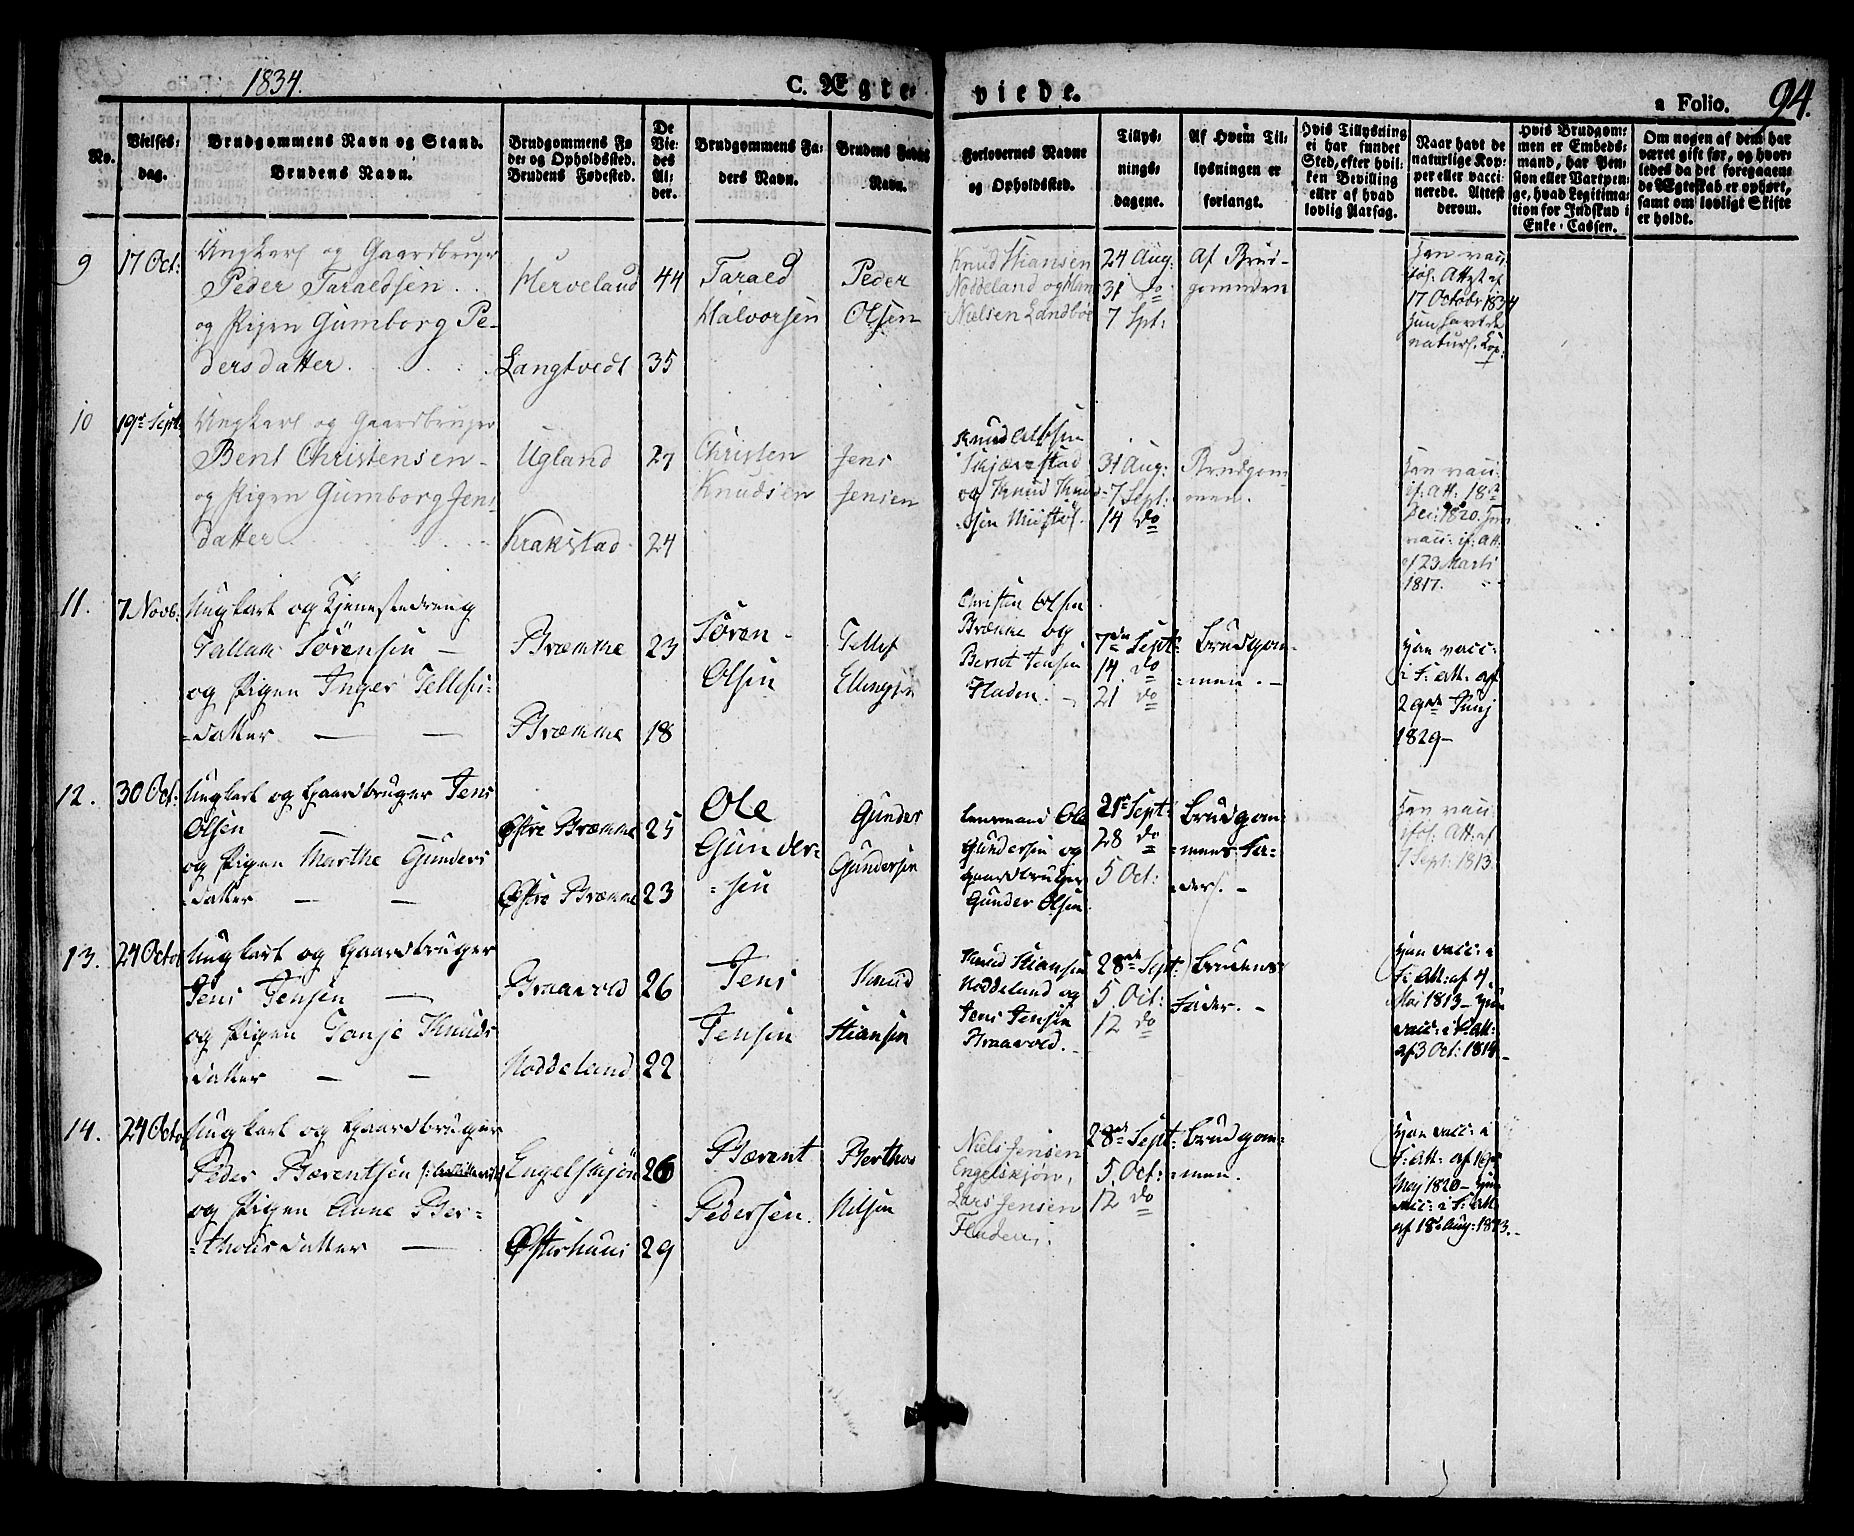 1834.
C. Ægte-
viede.
a Folio. 94.
No.
Vielses-
dag.
Brudgommens Navn og Stand.
Brudens Navn.
Brudgommens Fø
de- og Opholdssted.
Brudens Fødested.
De
Vie-
des
Al-
der.
Brudgommens Fa-
ders Navn.
Brudens Faders
Navn.
Forlovernes Navne
og Opholdssted.
Tillys-
nings-
dagene.
Af Hvem Til-
lysningen er
forlangt.
Hvis Tillysning
ei har fundet
Sted, efter hvil-
ken Bevilling
eller af hvad
lovlig Aarsag.
Naar havt de
naturlige Kop-
per eller vacci-
nerede. Attest
derom.
Hvis Brudgom-
men er Embeds-
mand, har Pen-
sion eller Vartpen-
ge, hvad Legitima-
tion for Indskud i
Enke-Cassen.
Om nogen af dem har
været gift før, og hvor-
ledes da det foregaaen-
de Ægteskab er ophørt,
samt om lovligt Skifte
er holdt.
9
17 Oct:
Ungkarl og Gaardbruger
Peder Taraldsen . .
og Pigen Gumborg Pe-
dersdatter.
Herveland 44
Langtvedt 35
Tarald
Halvorsen
Peder
Olsen
Knud Stiansen
Noddeland og
Nielsen Landbøe
24 Aug:
31 do
7 Spt:
Af Brud-
gommen
Han vacc:
ifol. Attest af
17 Octobr 1834
Hun havt de
naturl. Kop:
10
19de Sept:
Ungkarl og Gaardbruger
Bent Christensen -
og Pigen Gumborg Jens
datter
Ugland 27
Krakstad 24
Christen
Knudsen
Jens
Jensen
Knud
og Knud Knud-
sen
31 Aug:
7 Sept:
14 do
Brudgom-
men.
Han vacc:
if: Att: 18de
Dec: 1820. Hun
vacc: if: Att:
af 23 Marti
1817.
11.
7 Novb:
Ungkarl og Tjenestedreng
Tallak Sørensen -
og Pigen Inger Tellefs-
-datter
Bræmme 23
Bræmme 18
Søren -
Olsen
Tellef
Ellingsen
Christen Olsen
Bræmme og
Berent Jensen
Fladen. -
7de Sept:
14 do
21 do
Brudgom-
-men. -
Han vacc:
i F: Att: af
29de Junj
1829-
12.
30 Oct:
Ungkarl og Gaardbruger Jens
Olsen
og Pigen Marthe Gunders
-datter
Østre Bræmme 25
Østre Bræmme 23
Ole
Gunder-
-sen
Gunder
Gundersen
Lensmand Ole
Gundersen og
Gaardbruger
Gunder Olsen
21de Sept:
28 do
5 Oct:
Brudgom-
-mens Fa-
-der. -
Han vacc:
ifol. Att: af
7 Sept: 1813
13.
24 Octob
Ungkarl og Gaardbruger
Jens Jensen
og Pigen Tanje Knuds
-datter
Braavold 26
Noddeland 22
Jens
Jensen
Knud
Stiansen
Knud Stiansen
Noddeland og
Jens Jensen
Braavold.
28de Sept:
5. Oct:
12 do
Brudens
Fader. -
Han vacc: i
F: Att: af 4.
Mai 1813- Hun
vacc: i F: Att:
af 3 Oct: 1814-
14.
24 Octob
Ungkarl og Gaardbruger
Peder Bærentsen
og Pigen Anne Ber-
-tholdsdatter
Engelskjøn 26
Østerhuus 29
Bærent
Pedersen.
Berthol
Nilsen
Niels Jensen
Engelskjøn,
Lars Jensen
Fladen.
28de Sept:
5. Oct:
12 do
Brudgom-
-men.
Han vacc: i
F: Att: af 16de
Maj 1820- Hun
vacc: i F: Att:
af 18de Aug: 1813.-